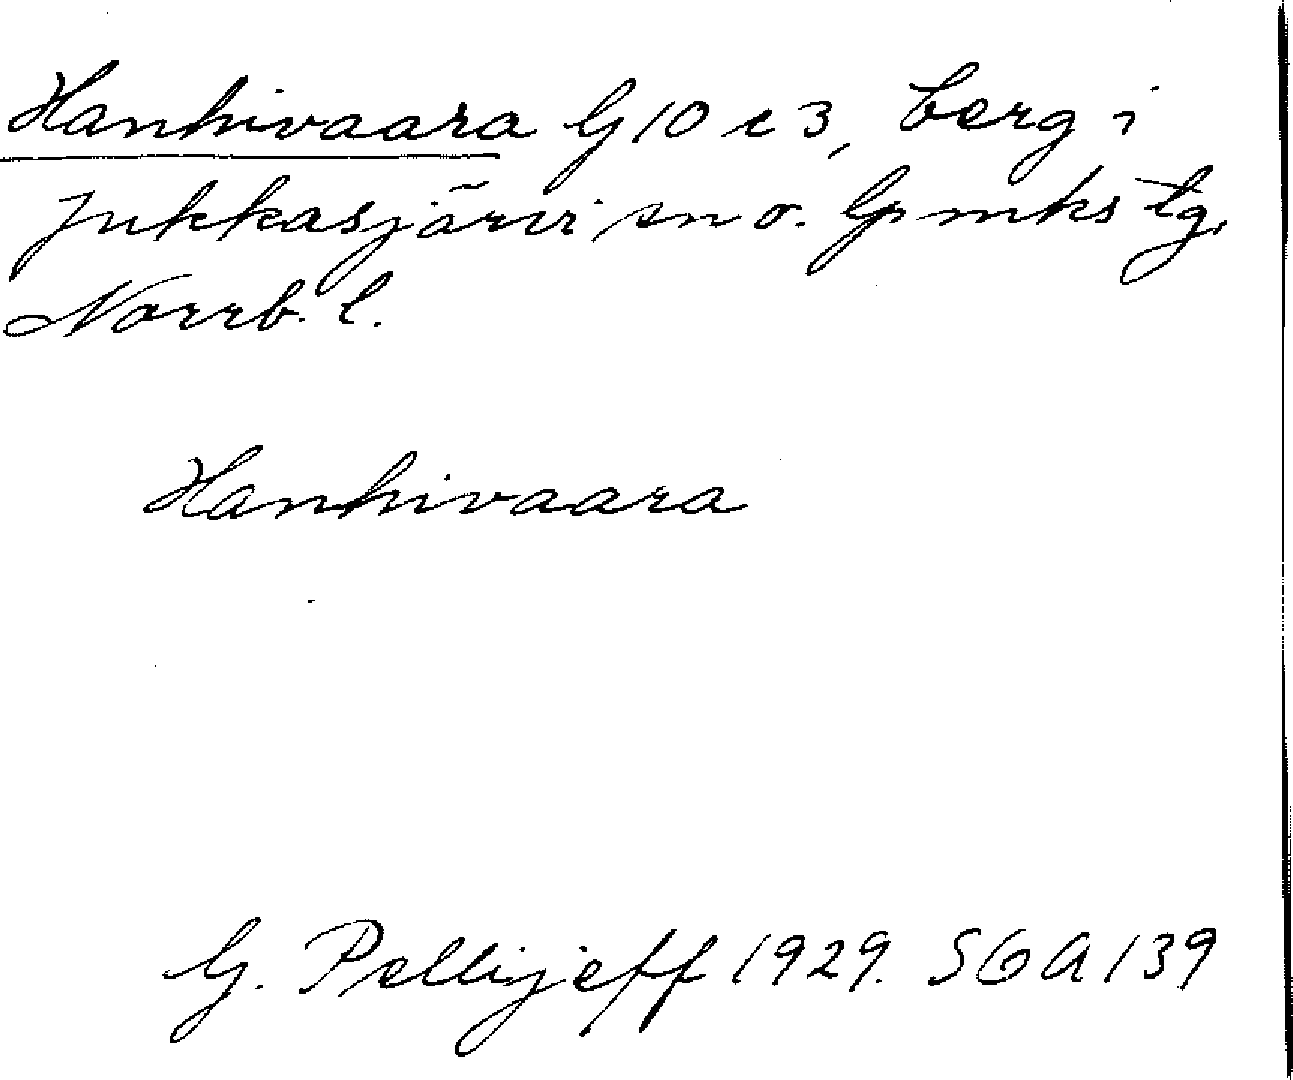 Hanhivaara G 10 e 3, berg i
Jukkasjärvi sn o. lpmks tg,
Norrb. l.
Hanhivaara
G. Pellijeff 1929. SGA 139